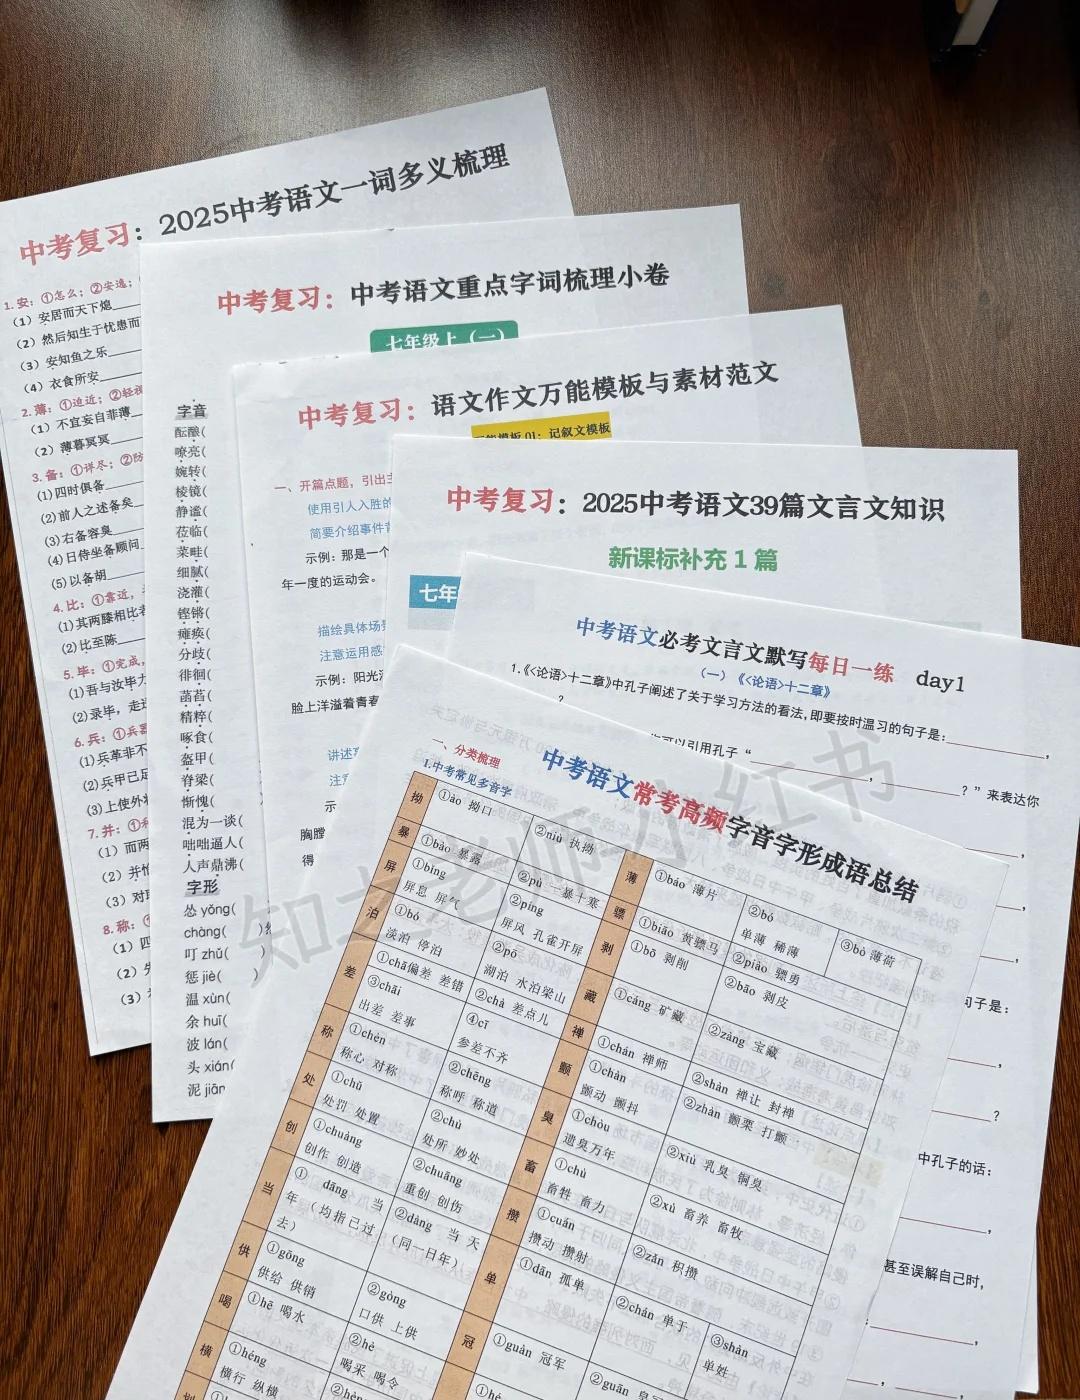 中考复习：2025中考语文一词多义梳理
1.安：①怎么；②安逸；
（1）安居而天下熄
（2）然后知生于忧患而
（3）安知鱼之乐
（4）衣食所安
2.薄：①迫近；②轻视
（1）不宜妄自菲薄
（2）薄暮冥冥
3.备：①详尽；②防
(1)四时俱备
(2)前人之述备矣
(3)右备容臭
(4)日侍坐备顾问
(5)以备胡
4.比：①靠近，
(1)其两膝相比者
(2)比至陈
5.毕：①完成，
(1)吾与汝毕力
(2)录毕，走
6.兵：①兵器
(1)兵革非不
(2)兵甲已足
(3)上使外
7.并：①
（1）而两
（2）并
（3）对
8.称：
（1）四
（2）
（3）
中考复习：中考语文重点字词梳理小卷
七年级上（一）
字音
酝酿(
嘹亮(
婉转(
棱镜(
静谧(
莅临(
菜畦(
细腻(
浇灌(
铿锵(
瘫痪(
分歧(
徘徊(
菡萏(
精粹(
啄食(
盔甲(
脊梁(
惭愧(
混为一谈(
咄咄逼人(
人声鼎沸(
字形
怂 yǒng(
chàng( )
叮 zhǔ( )
惩 jiè( )
温 xùn(
余 huī(
波 lán(
头 xián(
泥 jiān
中考复习：语文作文万能模板与素材范文
万能模板 01：记叙文模板
一、开篇点题，引出主
使用引人入胜的
简要介绍事件背
示例：那是一个
年一度的运动会。
描绘具体场景
注意运用感
示例：阳光
脸上洋溢着青春
讲述
注意
示
胸膛
得
中考复习：2025中考语文39篇文言文知识
新课标补充 1 篇
七年
中考语文必考文言文默写每日一练 day1
（一）《〈论语〉十二章》
1.《〈论语〉十二章》中孔子阐述了关于学习方法的看法，即要按时温习的句子是：，
？
可以引用孔子“
，？”来表达你
，
句子是：
，
？
中孔子的话：
，
甚至误解自己时，
，
中考语文常考高频字音字形成语总结
一、分类梳理
1.中考常见多音字
拗 ①ào 拗口 ②niù 执拗
暴 ①bào 暴露 ②pù 一暴十寒
屏 ①bǐng 屏息 屏气 ②píng 屏风 孔雀开屏
泊 ①bó 淡泊 停泊 ②pō 湖泊 水泊梁山
差 ①chā偏差 差错 ②chà 差点儿
③chāi 出差 差事 ④cī 参差不齐
称 ①chèn 称心 对称 ②chēng 称呼 称道
处 ①chǔ 处罚 处置 ②chù 处所 妙处
创 ①chuàng 创作 创造 ②chuāng 重创 创伤
当 ① dāng 当年（均指已过去） ②dàng 当天（同一日年）
供 ①gōng 供给 供销 ②gòng 口供 上供
喝 ①hē 喝水 ②hè 喝采 喝令
横 ①héng 横行 纵横 ②hèng
薄 ①báo 薄片 ②bó 单薄 稀薄 ③bò 薄荷
骠 ①biāo 黄骠马 ②piào 骠勇
剥 ①bō 剥削 ②bāo 剥皮
藏 ①cáng 矿藏 ②zàng 宝藏
禅 ①chán 禅师 ②shàn 禅让 封禅
颤 ①chàn 颤动 颤抖 ②zhàn 颤栗 打颤
臭 ①chòu 遗臭万年 ②xiù 乳臭 铜臭
畜 ①chù 畜牲 畜力 ②xù 畜养 畜牧
攒 ①cuán 攒动 攒射 ②zǎn 积攒
单 ①dān 孤单 ②chán 单于 ③shàn 单姓
冠 ①guàn 冠军 ②guān
知之老师小红书